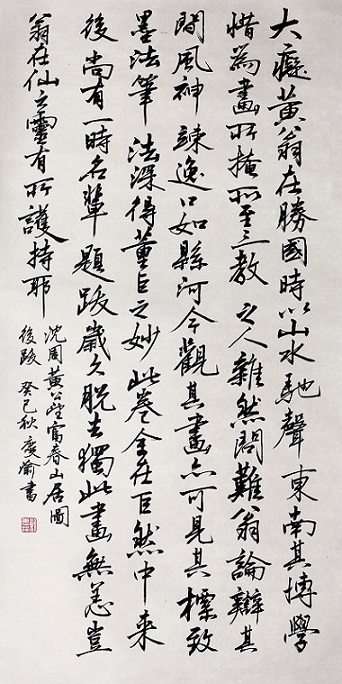 大癡黃翁在勝國時以山水馳聲東南其博學
惜為畫所掩所至三教之人雜然問難翁論辯其
間風神竦逸口如縣河今觀其畫亦可見其標致
墨法筆法深得董巨之妙此卷全在巨然中来
後尚有一時名輩題跋歲久脫去獨此畫無恙豈
翁在仙之靈有所護持耶
沈周黃公望富春山居圖
後跋 癸巳秋 書